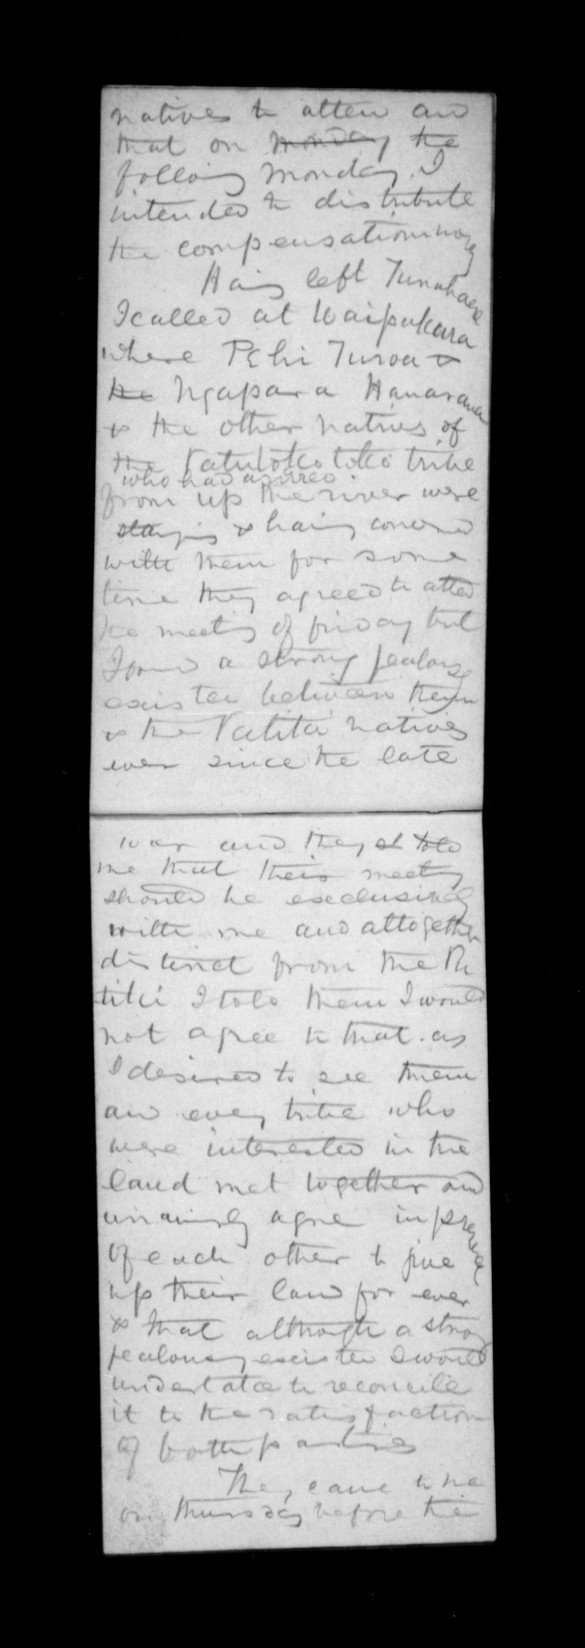 natives to atten and
that on Monday the
following Monday. I
intended to distribute
the compensation money
Having left Tunuhaere
I called at Waipakura
where Pehi Turoa &
the Ngapara Hanarana
& the other natives of
the Patutokotoko tribe
who had arrived
from up the river were
staying & having conversed
with them for some
time they agreed to attend
the meeting of friday but
I found a strong jealousy
existed between them
& the Patiti natives
ever since the late
war and they told
me that their meeting
should be exclusively
with me and altogether
distinct from the Pu
tiki I told them I would
not agree to that. as
I desired to see them
and every tribe who
were interested in the
land met together and
unanimously agree in presence
of each other to give
up their land for ever
& that although a strong
jealousy existed I would
undertake to reconcile
it to the satisfaction
of both parties
They came to me
on thursday before the